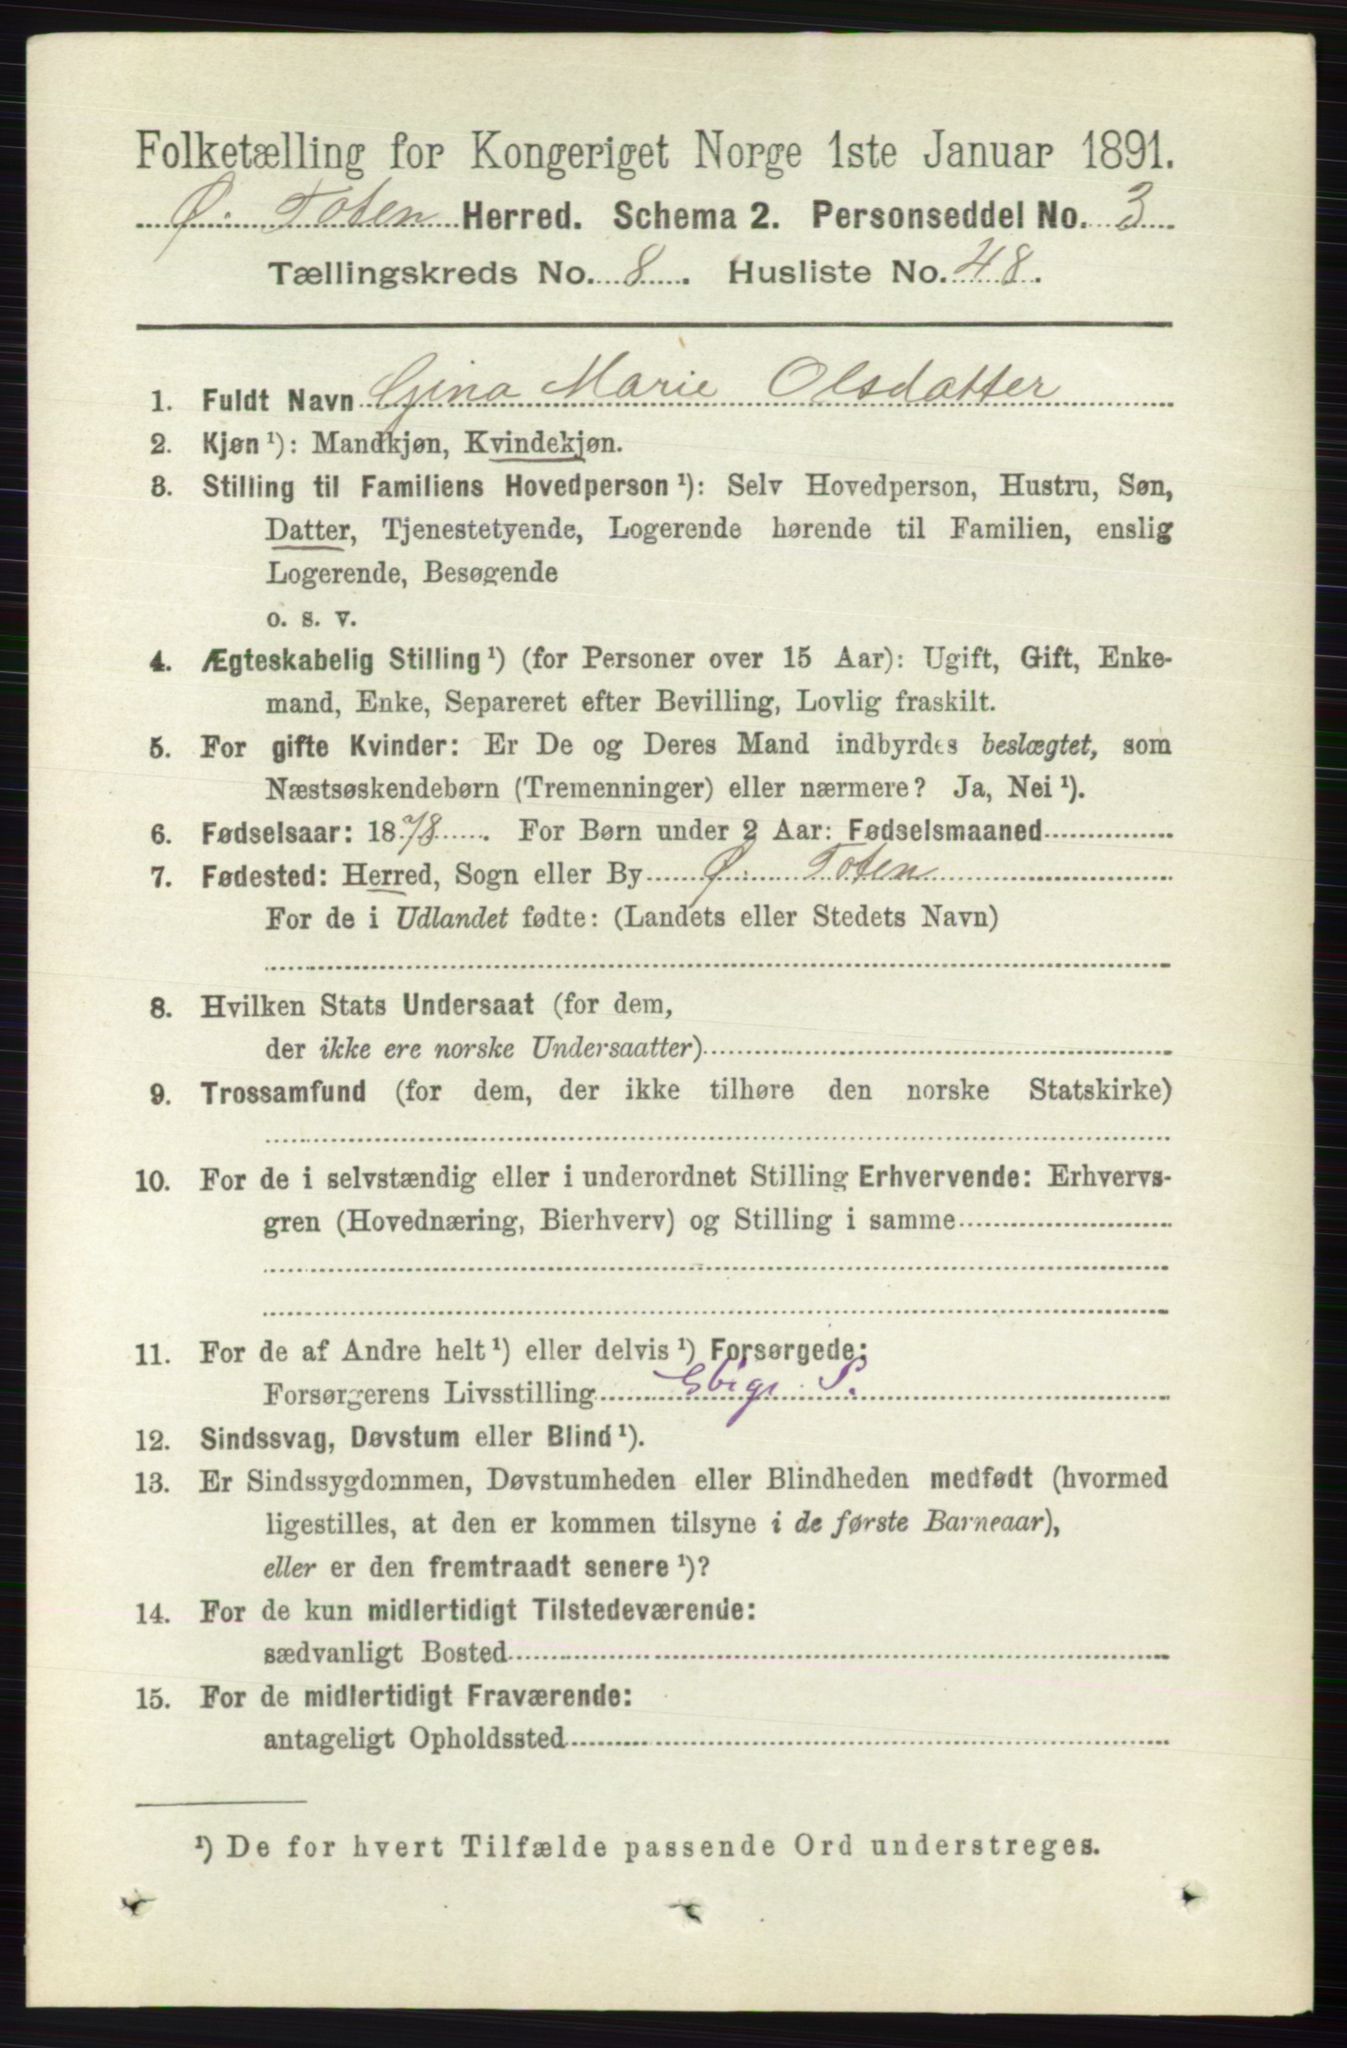 Folketælling for Kongeriget Norge 1ste Januar 1891.
Ø. Toten Herred. Schema 2. Personseddel No. 3
Tællingskreds No. 8. Husliste No. 48.
1. Fuldt Navn Gina Marie Olsdatter
2. Kjøn ¹): Mandkjøn, Kvindekjøn.
3. Stilling til Familiens Hovedperson ¹): Selv Hovedperson, Hustru, Søn,
Datter, Tjenestetyende, Logerende hørende til Familien, enslig
Logerende, Besøgende
o. s. v.
4. Ægteskabelig Stilling ¹) (for Personer over 15 Aar): Ugift, Gift, Enke-
mand, Enke, Separeret efter Bevilling, Lovlig fraskilt.
5. For gifte Kvinder: Er De og Deres Mand indbyrdes beslægtet, som
Næstsøskendebørn (Tremenninger) eller nærmere? Ja, Nei ¹).
6. Fødselsaar: 1878. For Børn under 2 Aar: Fødselsmaaned
7. Fødested: Herred, Sogn eller By Ø. Toten
For de i Udlandet fødte: (Landets eller Stedets Navn)
8. Hvilken Stats Undersaat (for dem,
der ikke ere norske Undersaatter)
9. Trossamfund (for dem, der ikke tilhøre den norske Statskirke)
10. For de i selvstændig eller i underordnet Stilling Erhvervende: Erhvervs-
gren (Hovednæring, Bierhverv) og Stilling i samme
11. For de af Andre helt ¹) eller delvis ¹) Forsørgede:
Forsørgerens Livsstilling
12. Sindssvag, Døvstum eller Blind ¹).
13. Er Sindssygdommen, Døvstumheden eller Blindheden medfødt (hvormed
ligestilles, at den er kommen tilsyne i de første Barneaar),
eller er den fremtraadt senere ¹)?
14. For de kun midlertidigt Tilstedeværende:
sædvanligt Bosted
15. For de midlertidigt Fraværende:
antageligt Opholdssted
¹) De for hvert Tilfælde passende Ord understreges.